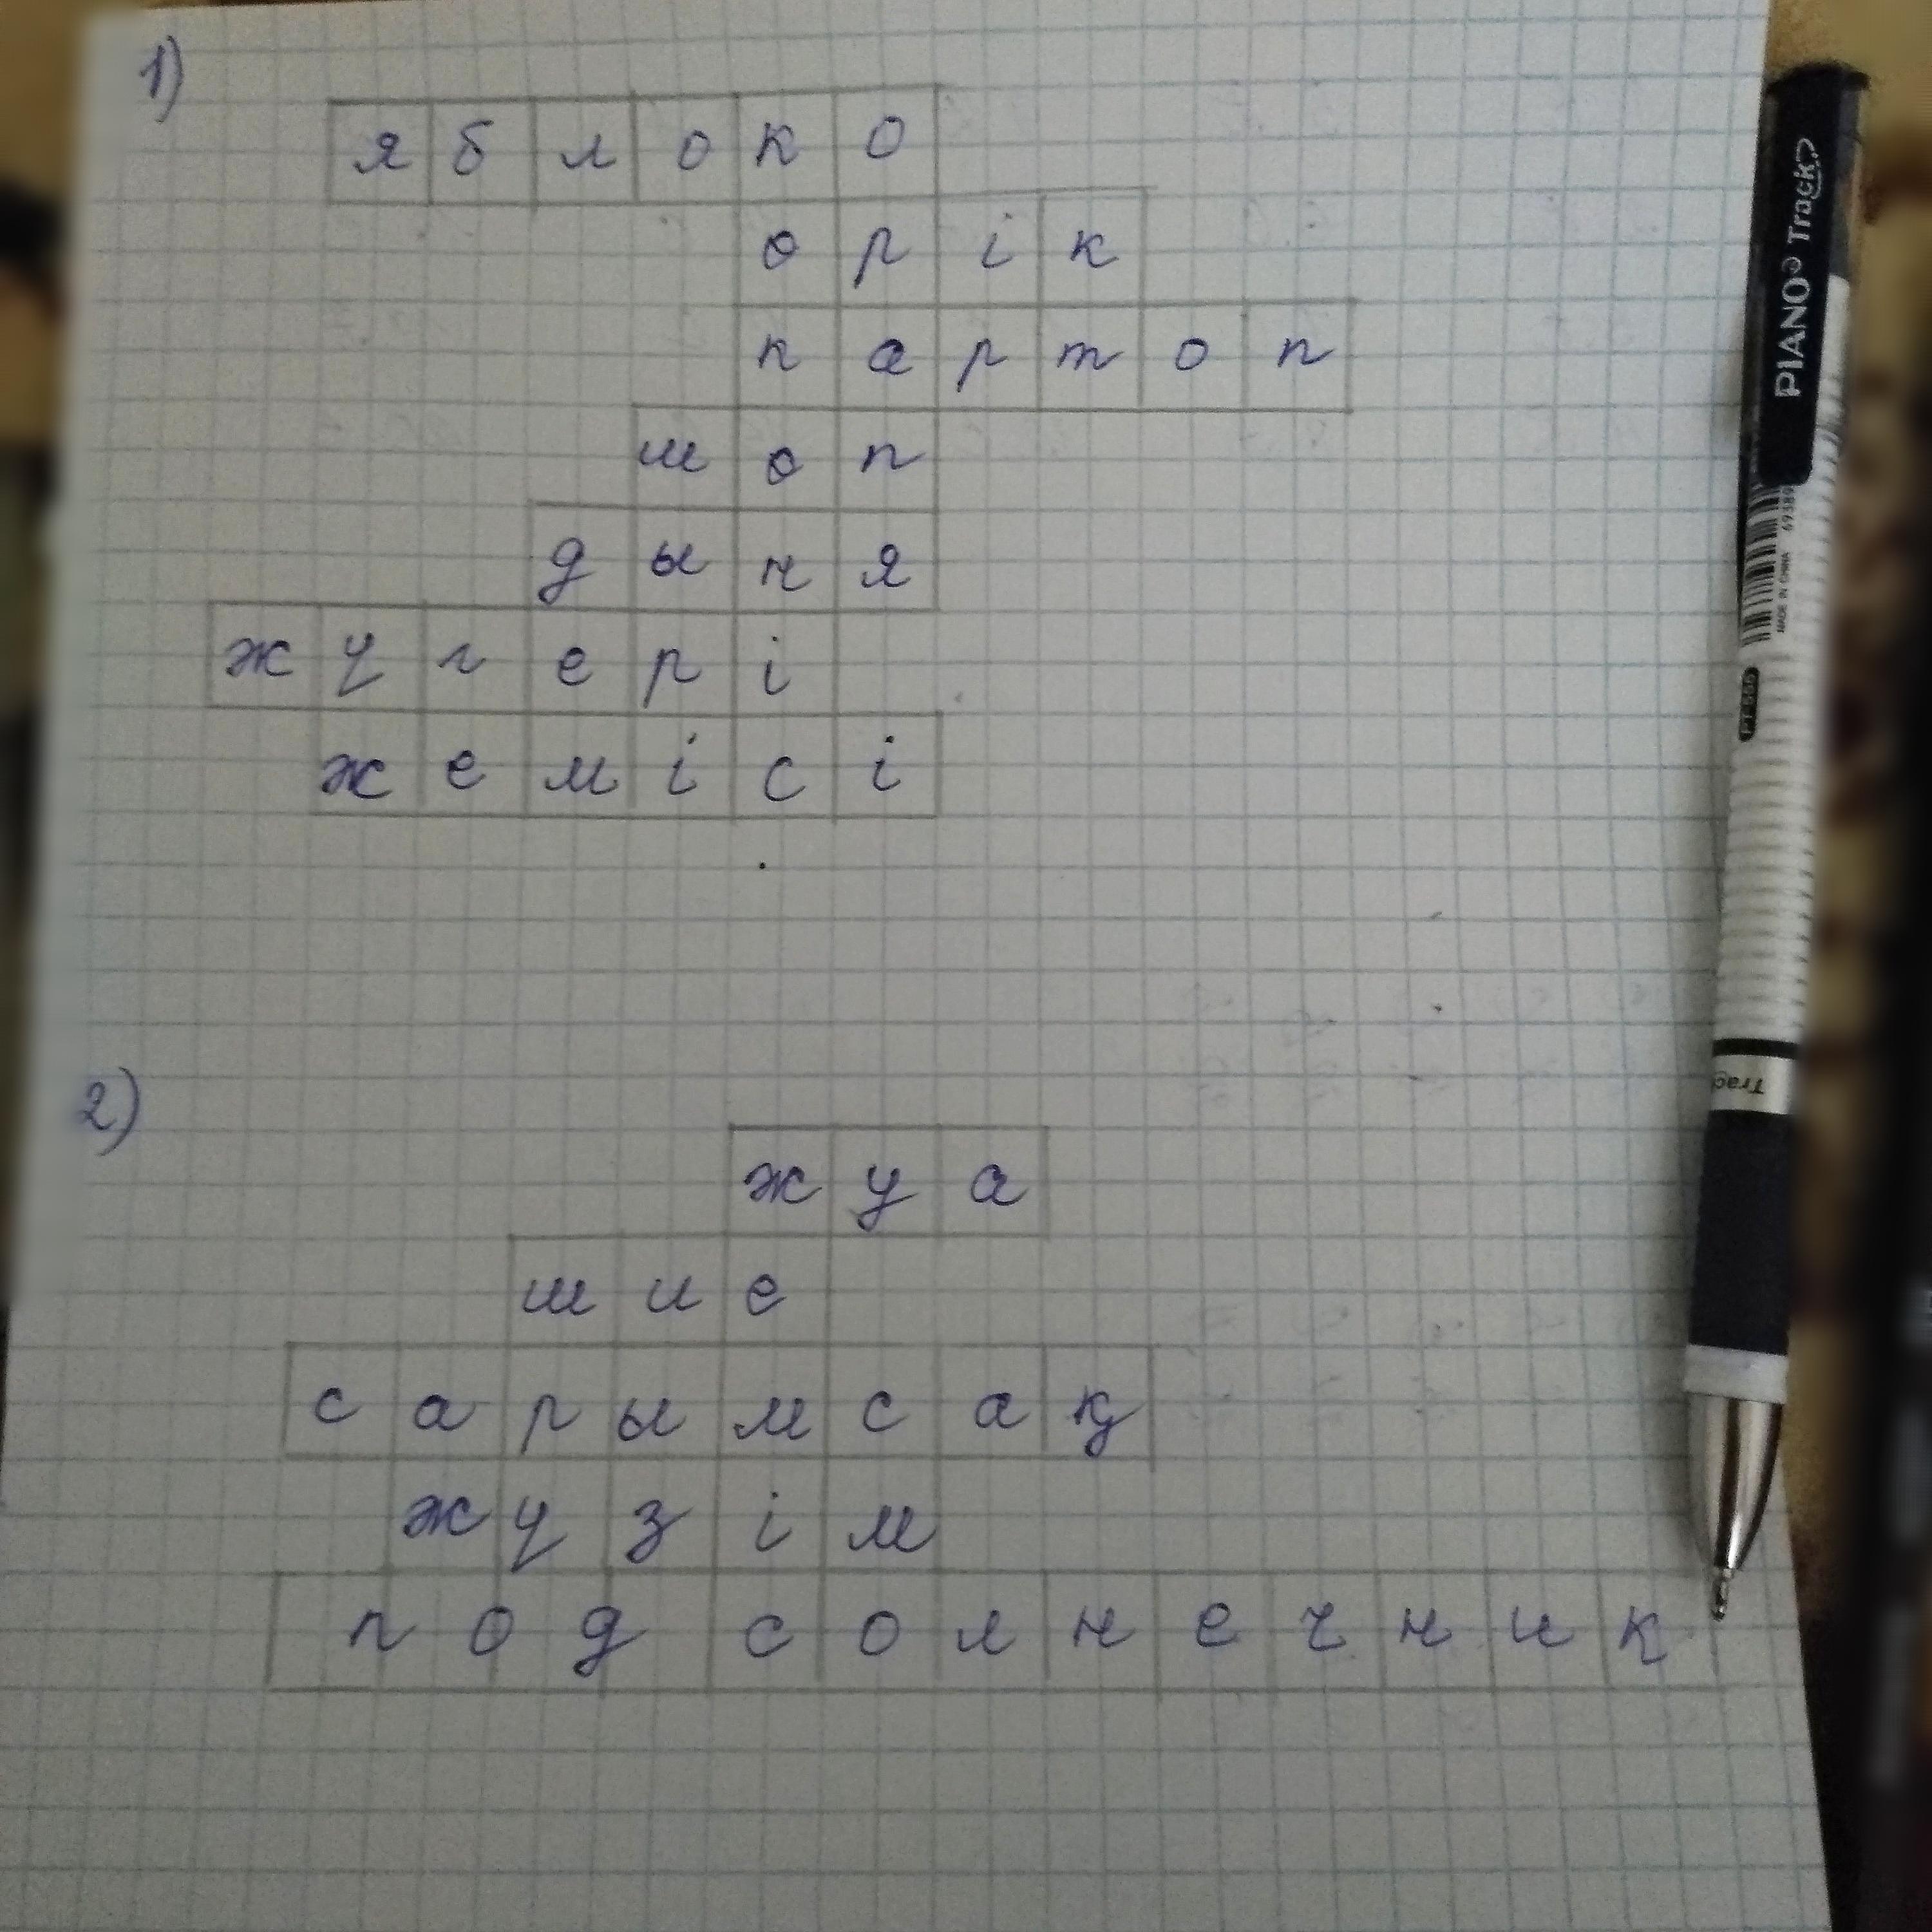 1)
яблоко
орік
картоп
шоп
дыня
жүгері
жемісі
2)
жуа
шие
сарымсақ
жүзім
подсолнечник
PIANO Track?
MADE IN CHINA
PT-505
Trac